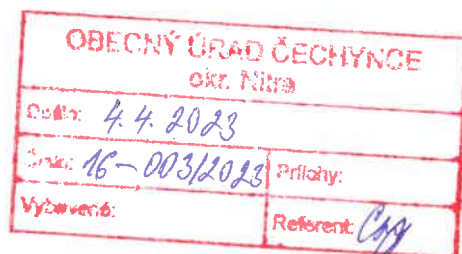 OBECNÝ ÚRAD ČECHYNCE
okr. Nitra
Došlo: 4.4.2023
Číslo: 16-003/2023 Prílohy:
Vybavené: Referent: